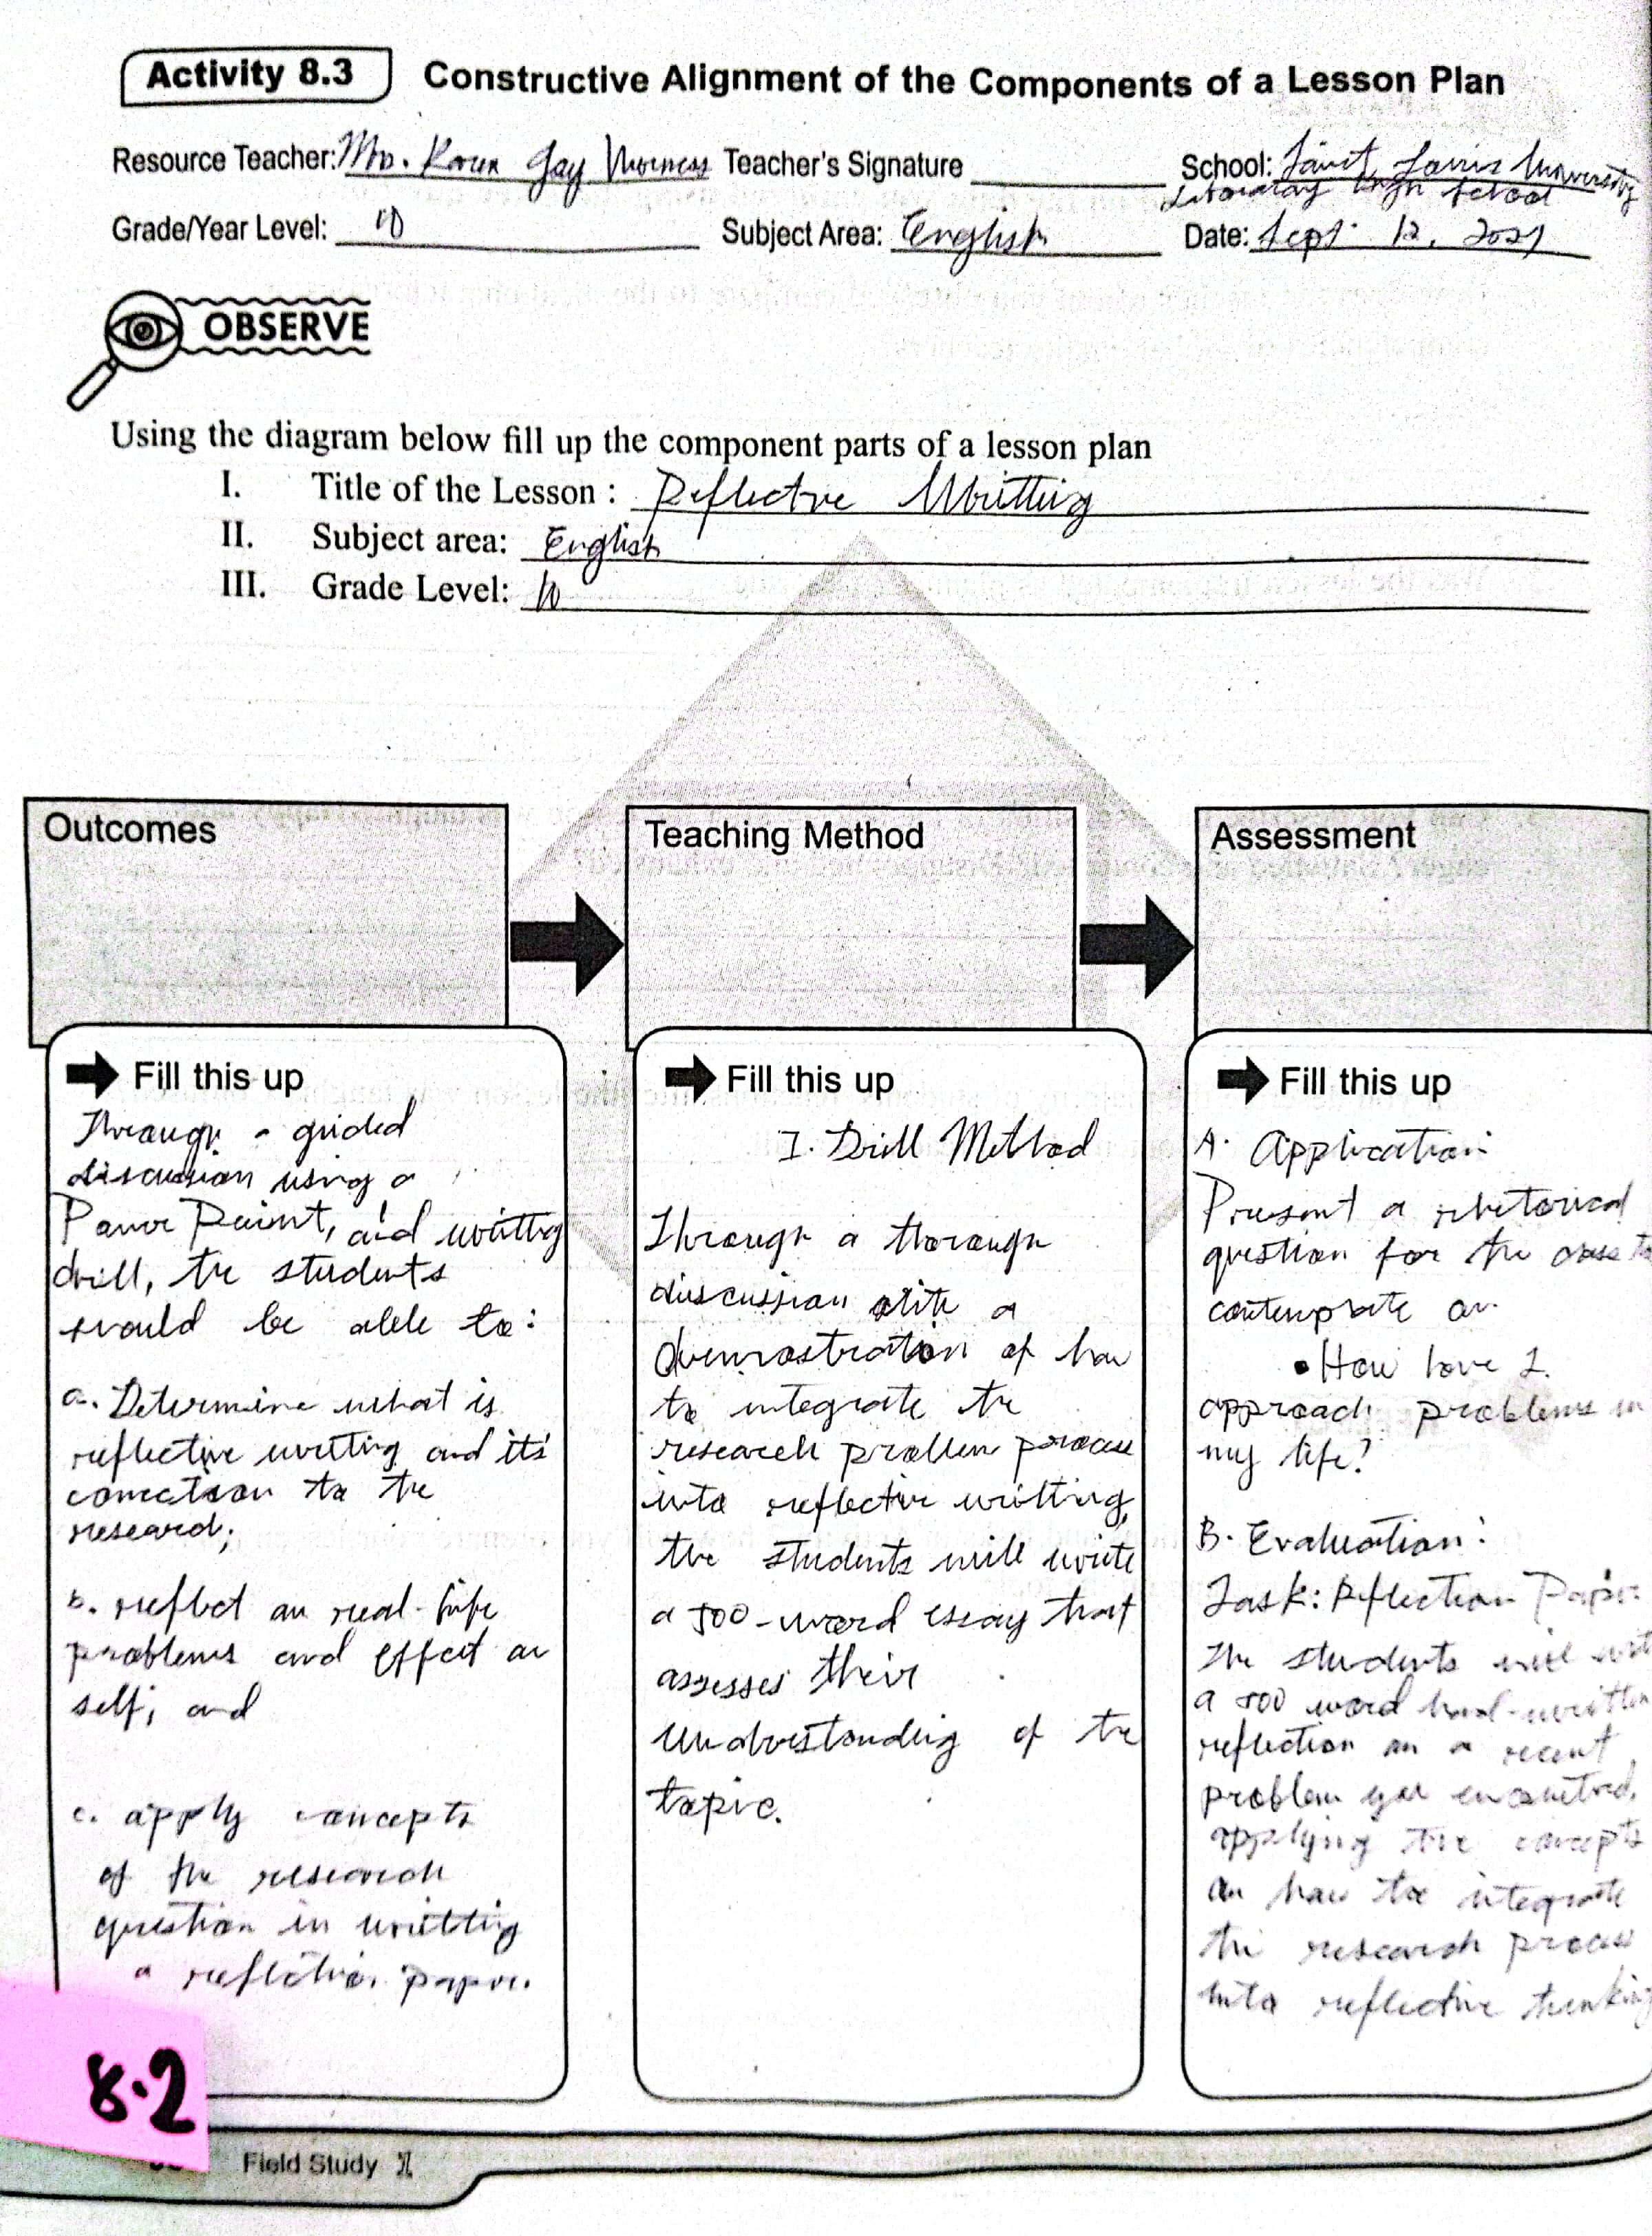 Activity 8.3 Constructive Alignment of the Components of a Lesson Plan
Resource Teacher: Gay Teacher's Signature School: Saint Louis University
Laboratory High School
Grade/Year Level: 10 Subject Area: English Date: Sept. 12,
OBSERVE
Using the diagram below fill up the component parts of a lesson plan
I. Title of the Lesson : Reflective Writting
II. Subject area: English
III. Grade Level: 10
Outcomes
Fill this up
Through a guided
discussion using a
Power Point, and writting
drill, the students
would be able to:
a. Determine what is
reflective writting and its'
conection to the
research;
b. reflect on real-life
problems and effect on
self; and
c. apply concepts
of the research
question in writting
a reflection paper.
Teaching Method
Fill this up
I. Drill Method
Through a thorough
discussion with a
of how
to integrate the
research problem process
into reflective writting,
the students will write
a 500-word essay that
assesses their
understanding of the
topic.
Assessment
Fill this up
A. Application:
Present a rhetorical
question for the class to
on
• How have I
approach problems in
my life?
B. Evaluation:
Task: Reflection Paper
The students will
a 500 word
reflection on a recent
problem you
applying the concepts
on how to integrate
the research process
into reflective thinking
8.2
Field Study 1